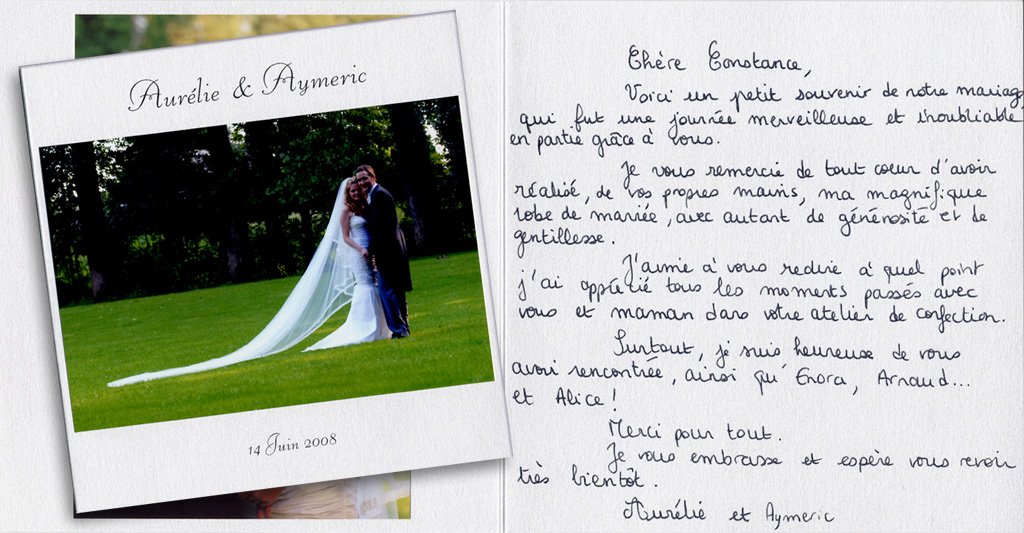 Aurélie & Aymeric
14 Juin 2008
Chère Constance,
Voici un petit souvenir de notre mariag
qui fut une journée merveilleuse et inoubliable
en partie grâce à vous.
Je vous remercie de tout cœur d'avoir
réalisé, de vos propres mains, ma magnifique
robe de mariée, avec autant de générosité et de
gentillesse.
J'aime à vous redire à quel point
j'ai apprécié tous les moments passés avec
vous et maman dans votre atelier de confection.
Surtout, je suis heureuse de vous
avoir rencontrée, ainsi qu'Enora, Arnaud...
et Alice !
Merci pour tout.
Je vous embrasse et espère vous revoir
très bientôt.
Aurélie et Aymeric